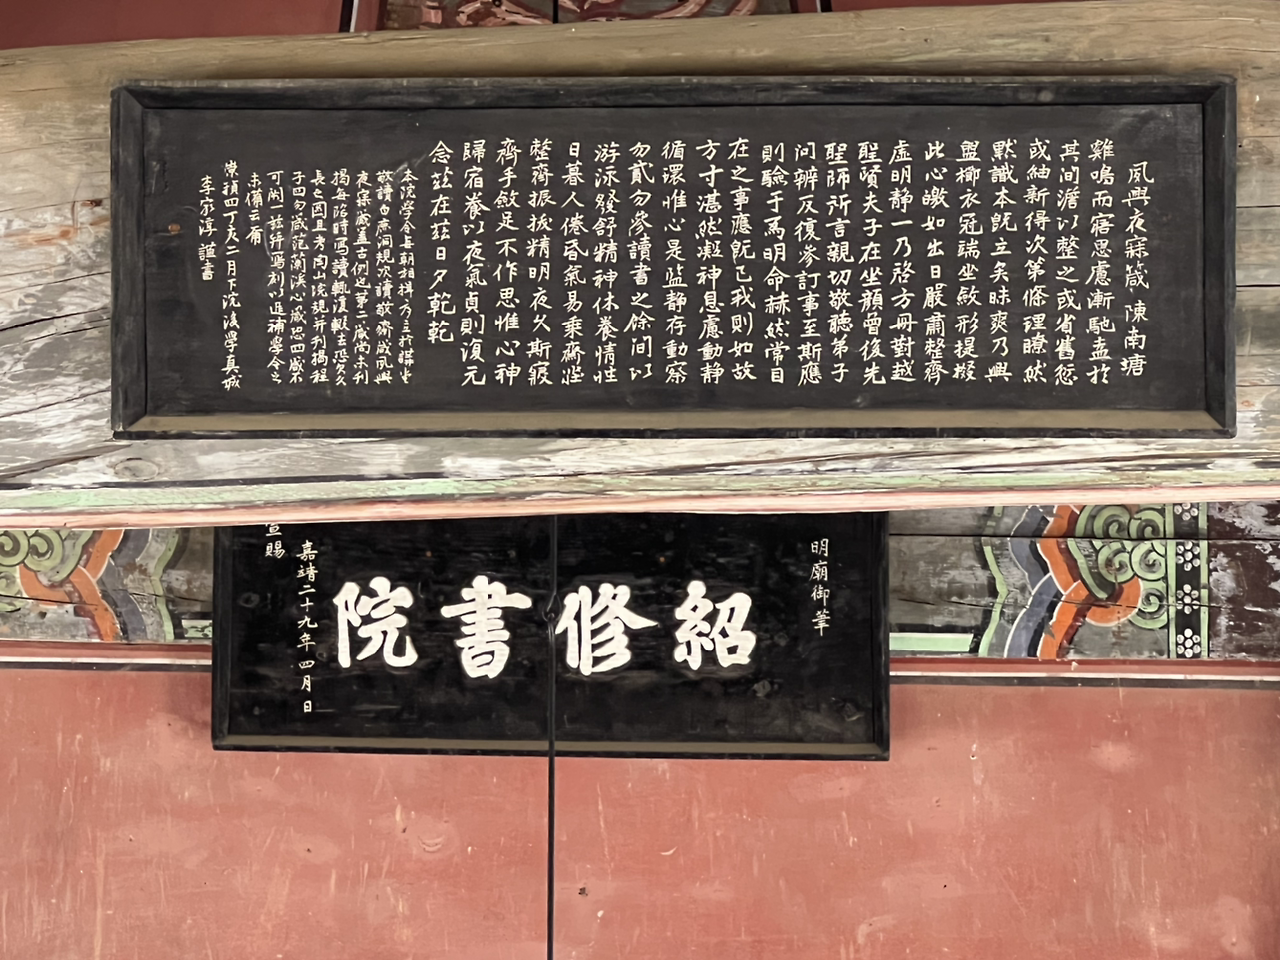 夙興夜寐箴 陳南塘
雞鳴而寤思慮漸馳盍於
其間澹以整之或省舊愆
或紬新得次第條理瞭然
默識本旣立矣昧爽乃興
盥櫛衣冠端坐斂形提掇
此心皦如出日嚴肅整齊
虛明靜一乃啓方冊對越
聖賢夫子在坐顔曾後先
聖師所言親切敬聽弟子
問辨反復參訂事至斯應
則驗于爲明命赫然常目
在之事應旣已我則如故
方寸湛然凝神息慮動静
循環惟心是监静存動察
勿貳勿參讀書之餘間以
游泳發舒精神休養情性
日暮人倦昏氣易乘齋莊
整齊振拔精明夜久斯寢
齊手斂足不作思惟心神
歸宿養以夜氣貞則復元
念玆在玆日夕乾乾
本院學令每朝相揖方立於
敬讀白鹿洞規次讀敬齋箴夙興
夜寐箴盖古例也第二箴尚未刊
揭每臨時寫讀輒復輟去恐久久
長之因且考陶山院規并刊揭程
子四勿箴范蘭溪心箴恐四箴不
可闕一玆幷寫刻以追補學令之
未備云爾
崇禎四丁亥二月下浣後學真城
李家淳謹書
明廟御筆
紹修書院
嘉靖二十九年四月 日
宣賜